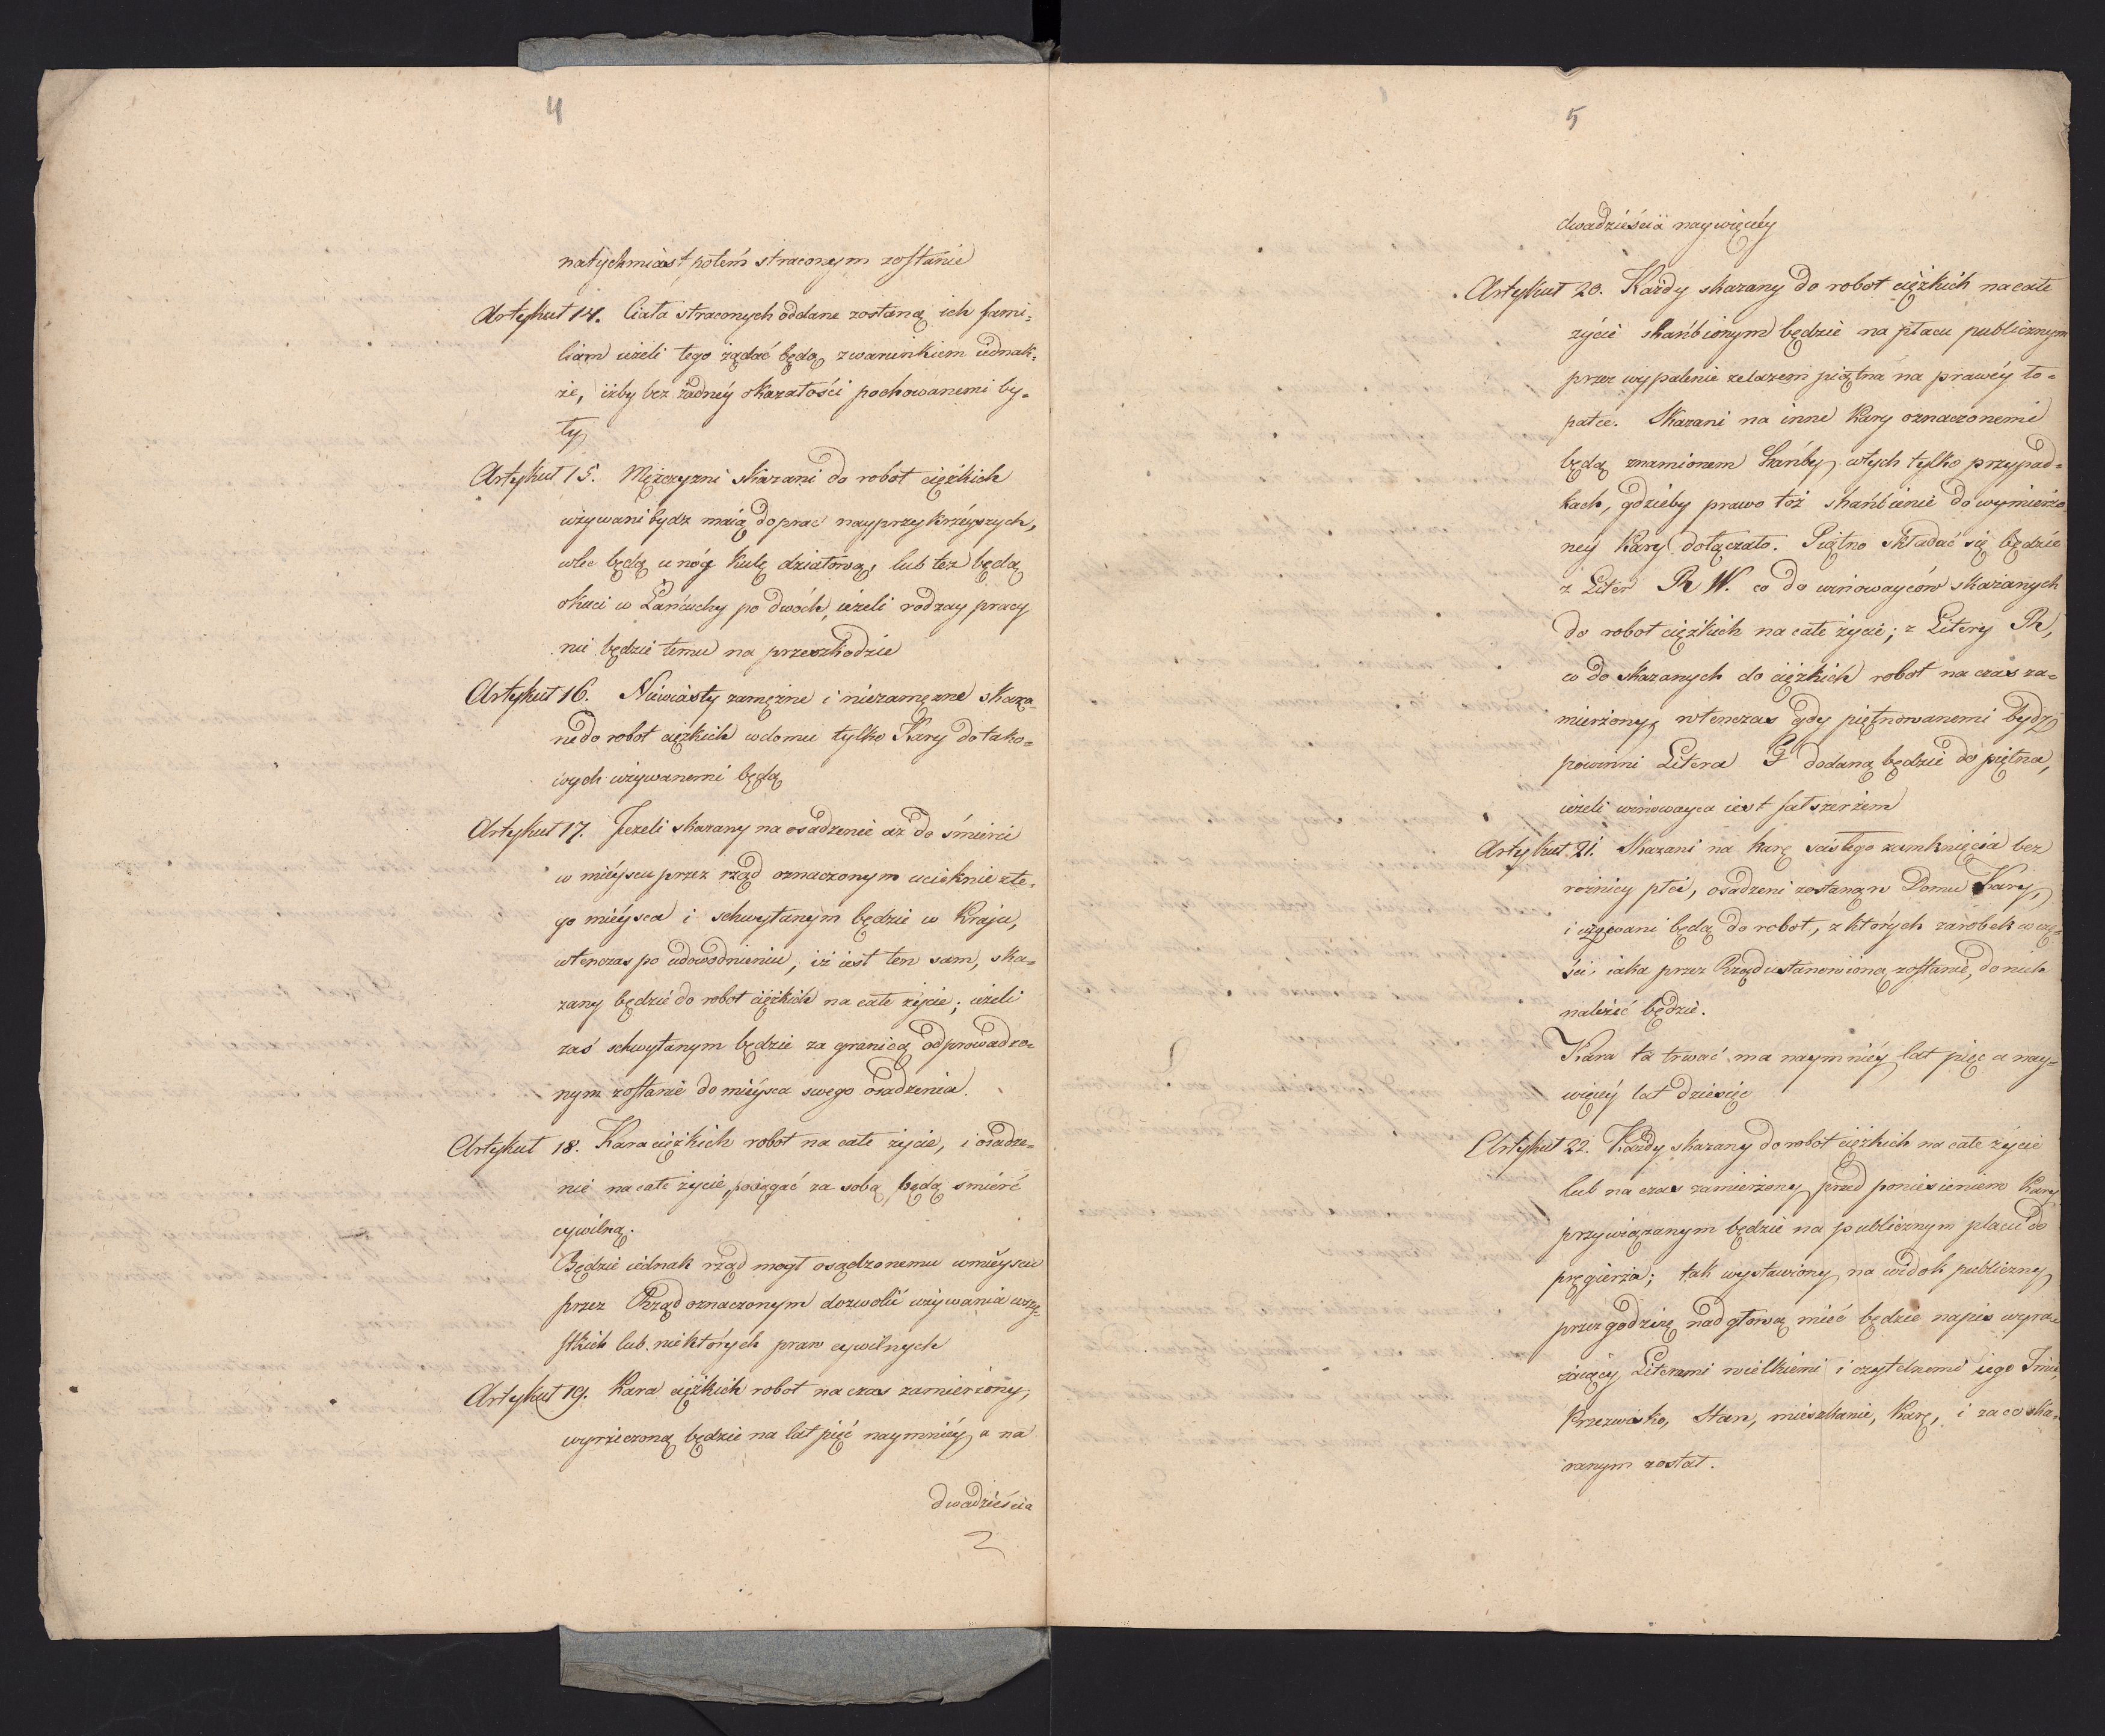 4
natychmiast potém straconym zostanie
Artykuł 14. Ciała straconych oddane zostaną ich fami=
liom ieżeli tego żądać będą z warunkiem iednak=
że, iżby bez żadnéy okazałości pochowanemi by=
ły
Artykuł 15. Mężczyzni skazani do robot ciężkich
używani bydz maią do prac nayprzykrzéyszych,
wlec będą u nóg kulę działową, lub też będą
okuci w Łańcuchy po dwóch, ieżeli rodzay pracy
nie będzie temu na przeszkodzie
Artykuł 16. Niewiasty zamężne i niezamężne skaza=
ne do robot ciężkich w domu tylko Kary do tako=
wych używanemi będą
Artykuł 17. Jeżeli skazany na osadzenie aż do śmierci
w miéyscu przez rząd oznaczonym ucieknie z te=
go miéysca i schwytanym będzie w Kraju,
wtenczas po udowodnieniu, iż iest ten sam, ska=
zany będzie do robot ciężkich na całe życie; ieżeli
zaś schwytanym będzie za granicą odprowadzo=
nym zostanie do miéysca swego osadzenia.
Artykuł 18. Kara ciężkich robot na całe życie, i osadze=
nie na całe życie pociągać za sobą będą śmierć
cywilną.
Będzie iednak rząd mogł osądzonemu w miéyscu
przez Rząd oznaczonym dozwolić używania wszy=
stkich lub niektórych praw cywilnych
Artykuł 19. Kara ciężkich robot na czas zamierzony,
wyrzeczoną będzie na lat pięć naymniéy a na
dwadzieścia
2
5
dwadzieścia naywięcéy
Artykuł 20. Każdy skazany do robot ciężkich na całe
życie shańbionym będzie na placu publicznym
przez wypalenie żelazem piętna na prawéy ło=
patce. Skazani na inne Kary oznaczonemi
będą znamionem Hańby w tych tylko przypad=
kach, gdzieby prawo toż shańbienie do wymierzo
néy Kary dołączało. Piętno składać się będzie
z Liter R W. co do winowayców skazanych
do robot ciężkich na całe życie; z Litery R,
co do skazanych do ciężkich robot na czas za=
mierzony, wtenczas gdy piętnowanemi bydz
powinni Litera G dodaną będzie do piętna,
ieżeli winowayca iest fałszerzem
Artykuł 21. Skazani na karę ścisłego zamknięcia bez
rożnicy płci, osadzeni zostaną w Domu Kary,
i używani będą do robot, z których zarobek w czę=
ści, iaka przez Rząd ustanowioną zostanie, do nich
należéć będzie.
Kara ta trwać ma naymniéy lat pięc a nay=
więcéy lat dziesięc
Artykuł 22. Każdy skazany do robot ciężkich na całe życie
lub na czas zamierzony przed poniesieniem Kary
przywiązanym będzie na publicznym placu do
pręgierza; tak wystawiony na widok publiczny
przez godzinę nad głową mieć będzie napis wyra=
żaiący Literami wielkiemi i czytelnemi iego Imie,
Przezwisko, Stan, mieszkanie, Karę, i za co ska=
zanym został.